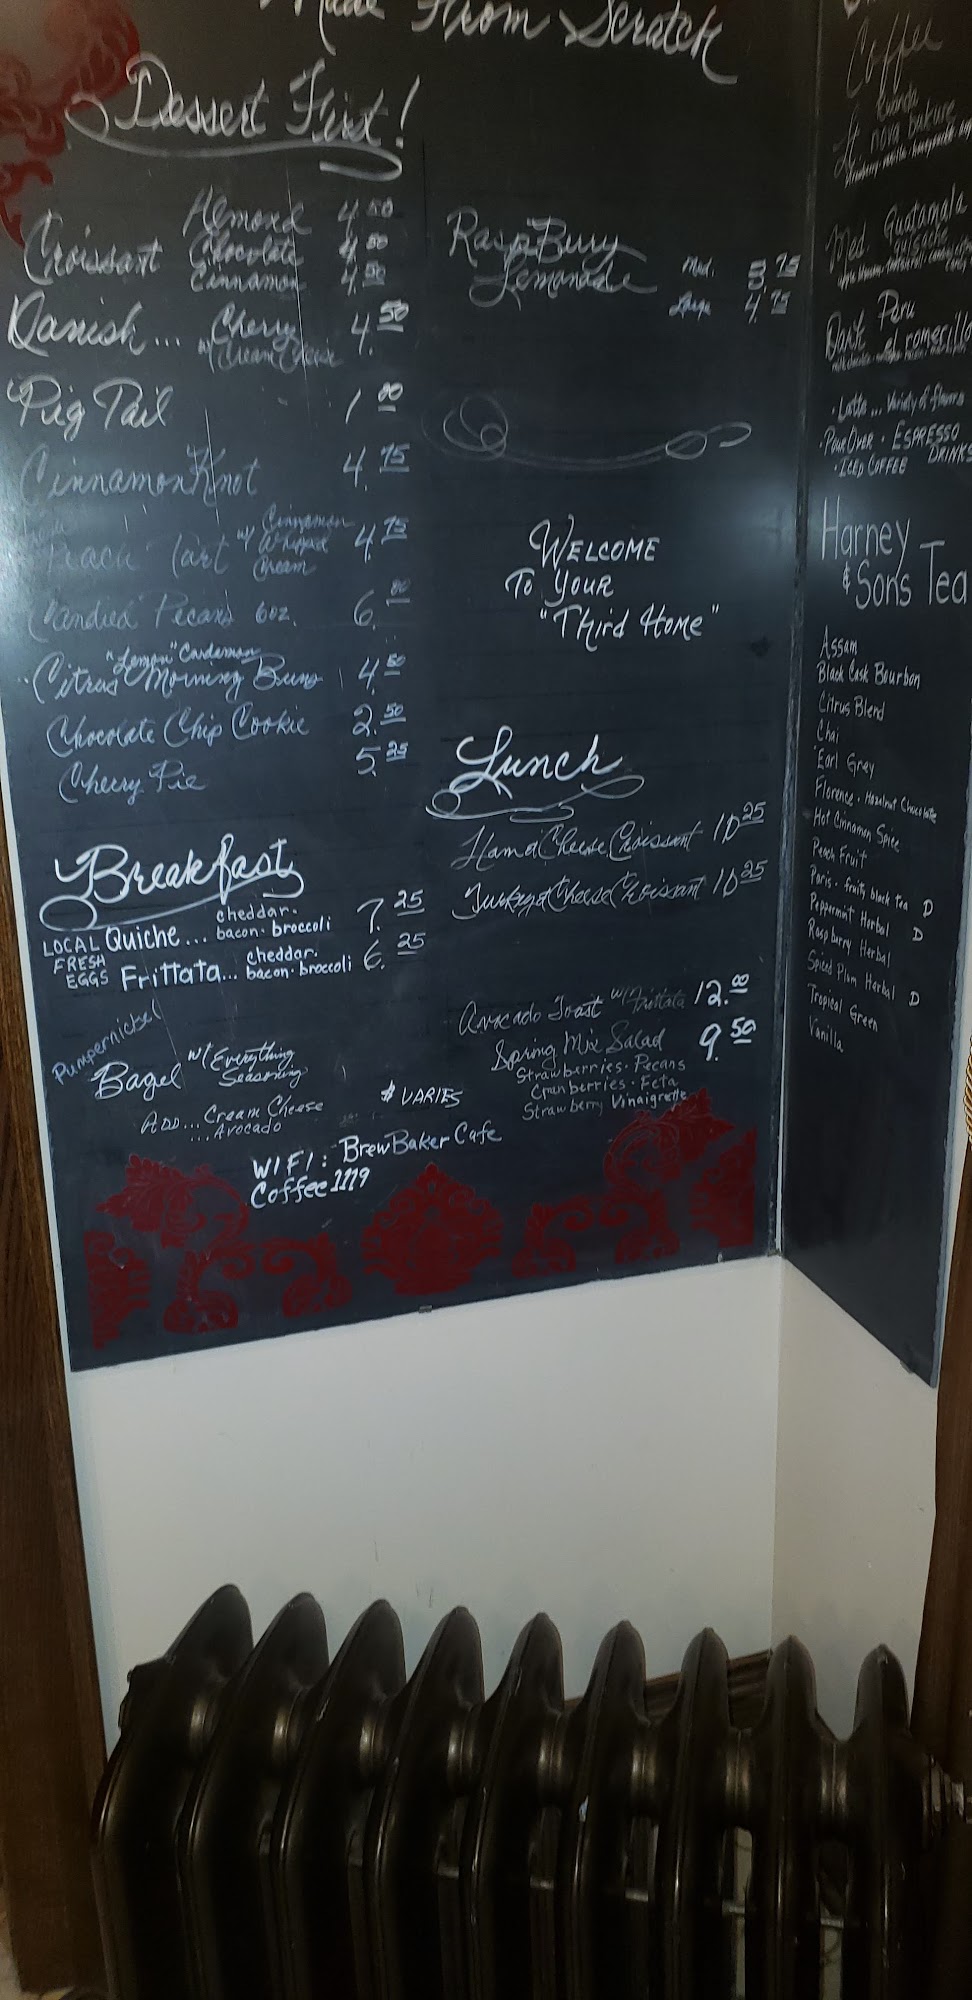 Made From Scratch
Dessert First!
Croissant Almond 4.50
Chocolate 4.50
Cinnamon 4.50
Danish... Cherry 4.50
w/ Cream Cheese
Pig Tail 1.00
Cinnamon Knot 4.75
Peach Tart w/ Cinnamon Whipped Cream 4.75
Candied Pecans 6oz. 6.00
"Lemon" Cardamon
Citrus Morning Buns 4.50
Chocolate Chip Cookie 2.50
Cherry Pie 5.25
Breakfast
LOCAL FRESH EGGS
Quiche... cheddar. bacon. broccoli 7.25
Frittata... cheddar. bacon. broccoli 6.25
Pumpernickel
Bagel w/ Everything Seasoning
ADD... Cream Cheese
...Avocado
$ VARIES
WIFI: BrewBaker Cafe
Coffee1119
RaspBurry
Lemonade Med. 3.75
Large 4.75
WELCOME
TO YOUR
"Third Home"
Lunch
Ham & Cheese Croissant 10.25
Turkey & Cheese Croissant 10.25
Avocado Toast w/ Frittata 12.00
Spring Mix Salad 9.50
Strawberries. Pecans
Cranberries. Feta
Strawberry Vinaigrette
Coffee
Lt Rwanda
Med Guatamala
Dark Peru
el romerillo
. Latte... Variety of flavors
. Pour Over . ESPRESSO DRINKS
. ICED COFFEE
Harney
& Sons Tea
Assam
Black Cask Bourbon
Citrus Blend
Chai
Earl Grey
Florence. Hazelnut Chocolate
Hot Cinnamon Spice
Peach Fruit
Paris. fruity black tea D
Peppermint Herbal D
Raspberry Herbal
Spiced Plum Herbal D
Tropical Green
Vanilla